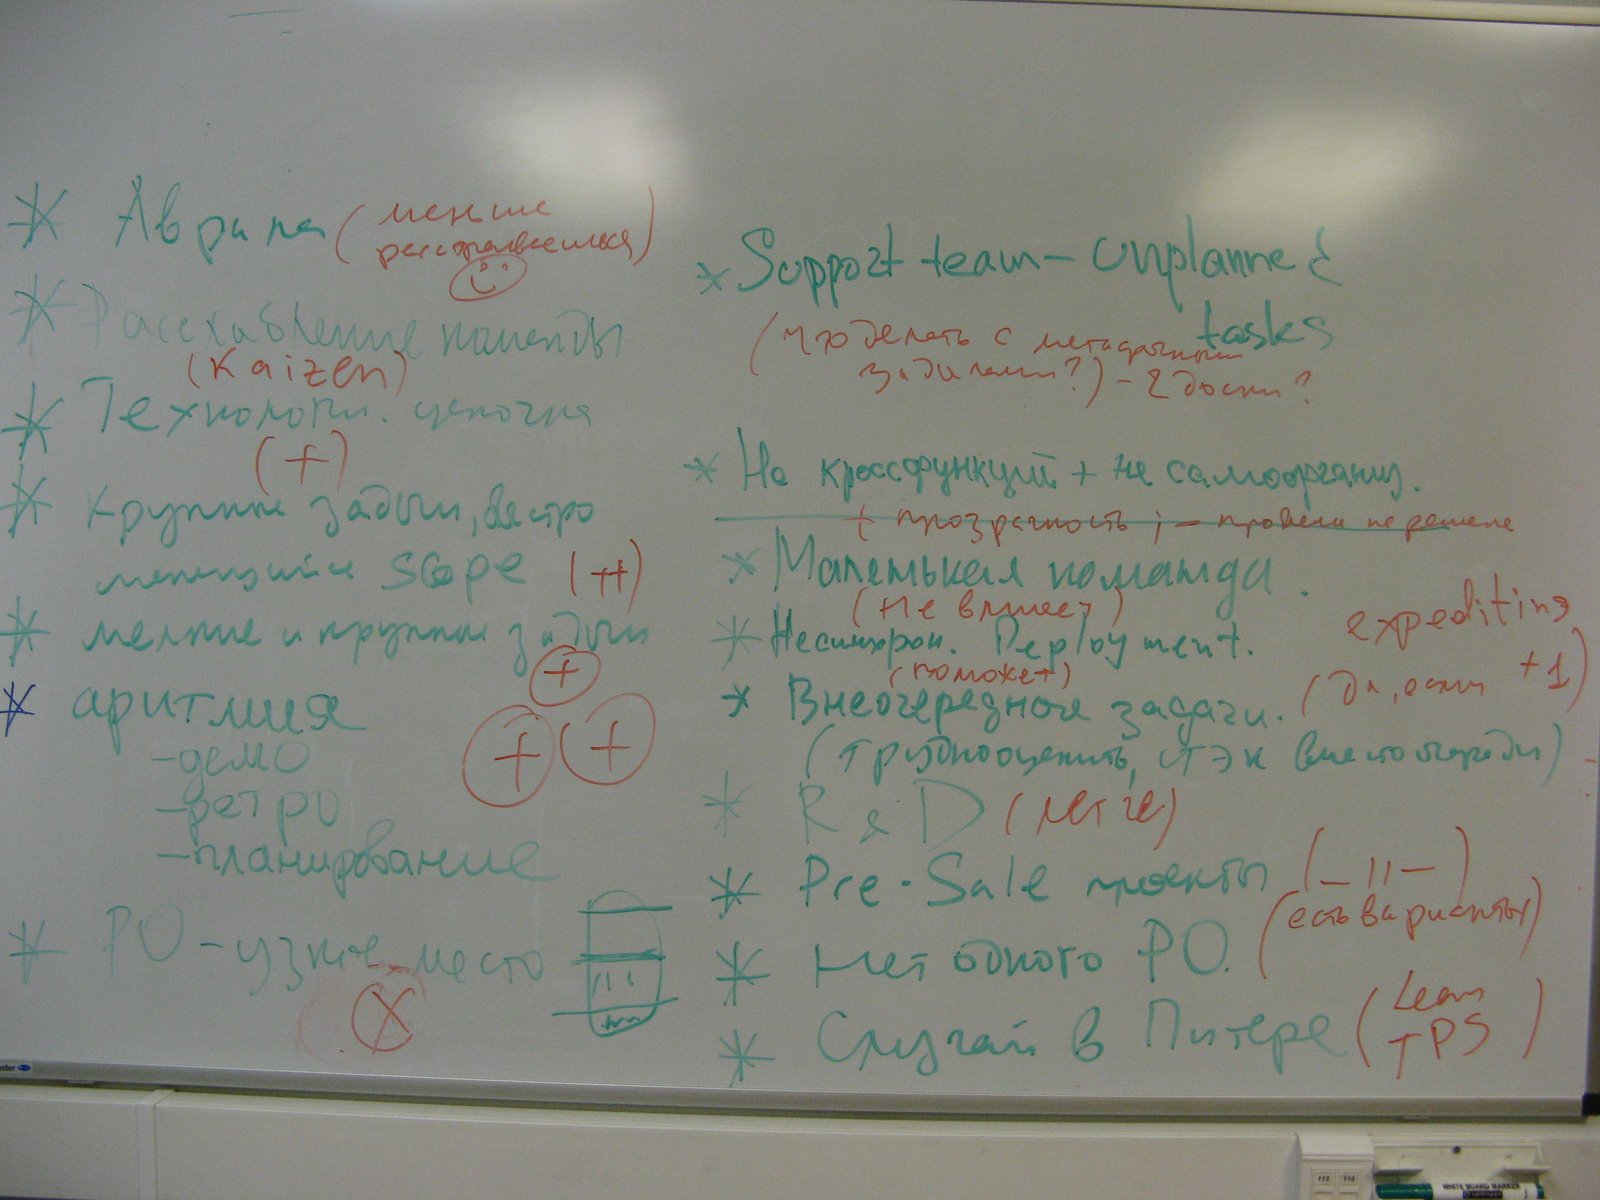 * Аврала (меньше
расстраиваешься)
* Расслабление команды
(Kaizen)
* Технологич. цепочка
(+)
* Крупные задачи, быстро
меняющийся scope (++)
* мелкие и крупные задачи
(+)
* аритмия
+ +
- демо
- ретро
- планирование
* PO - узкое место
X
* Support team - unplanned
tasks
(что делать с
задачами?) - 2 доски?
* Не кроссфункций + не самоорганиз.
+ прозрачность ; - не решение
* Маленькая команда.
(не влияет)
* Несинхрон. Deployment.
expediting
(поможет)
* Внеочередные задачи. (Да, если +1)
(трудно оценить, стэк вместо очереди)
* R & D (легче)
* Pre-Sale проекты (-11-)
* Нет одного PO. (есть варианты)
* Случай в Питере (Lean
TPS)